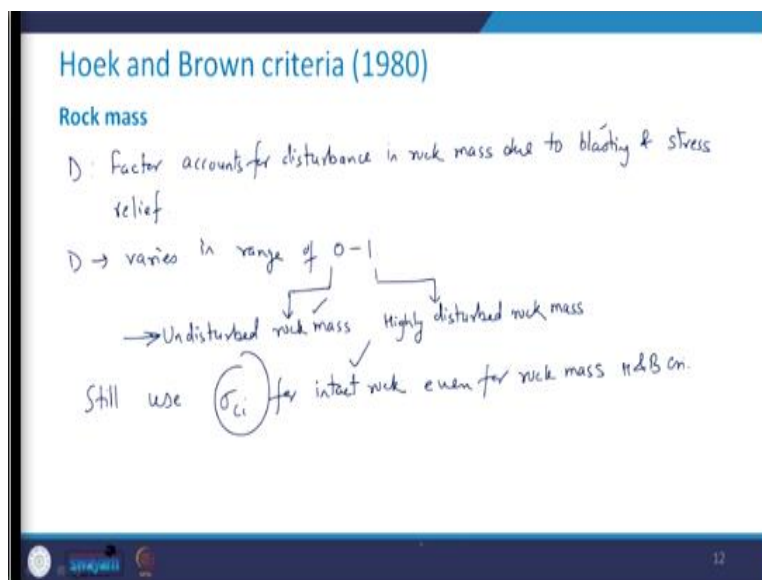 Hoek and Brown criteria (1980)
Rock mass
D : Factor accounts for disturbance in rock mass due to blasting & stress
relief
D → varies in range of 0-1
→ Undisturbed rock mass Highly disturbed rock mass
Still use σci for intact rock even for rock mass H&B cn.
swayam
12